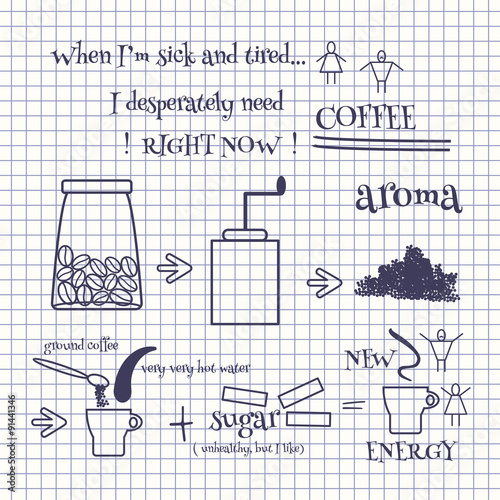 when I'm sick and tired...
I desperately need
COFFEE
! RIGHT NOW !
aroma
ground coffee
very very hot water
NEW
+ sugar =
( unhealthy, but I like)
ENERGY
Adobe Stock | #91441346